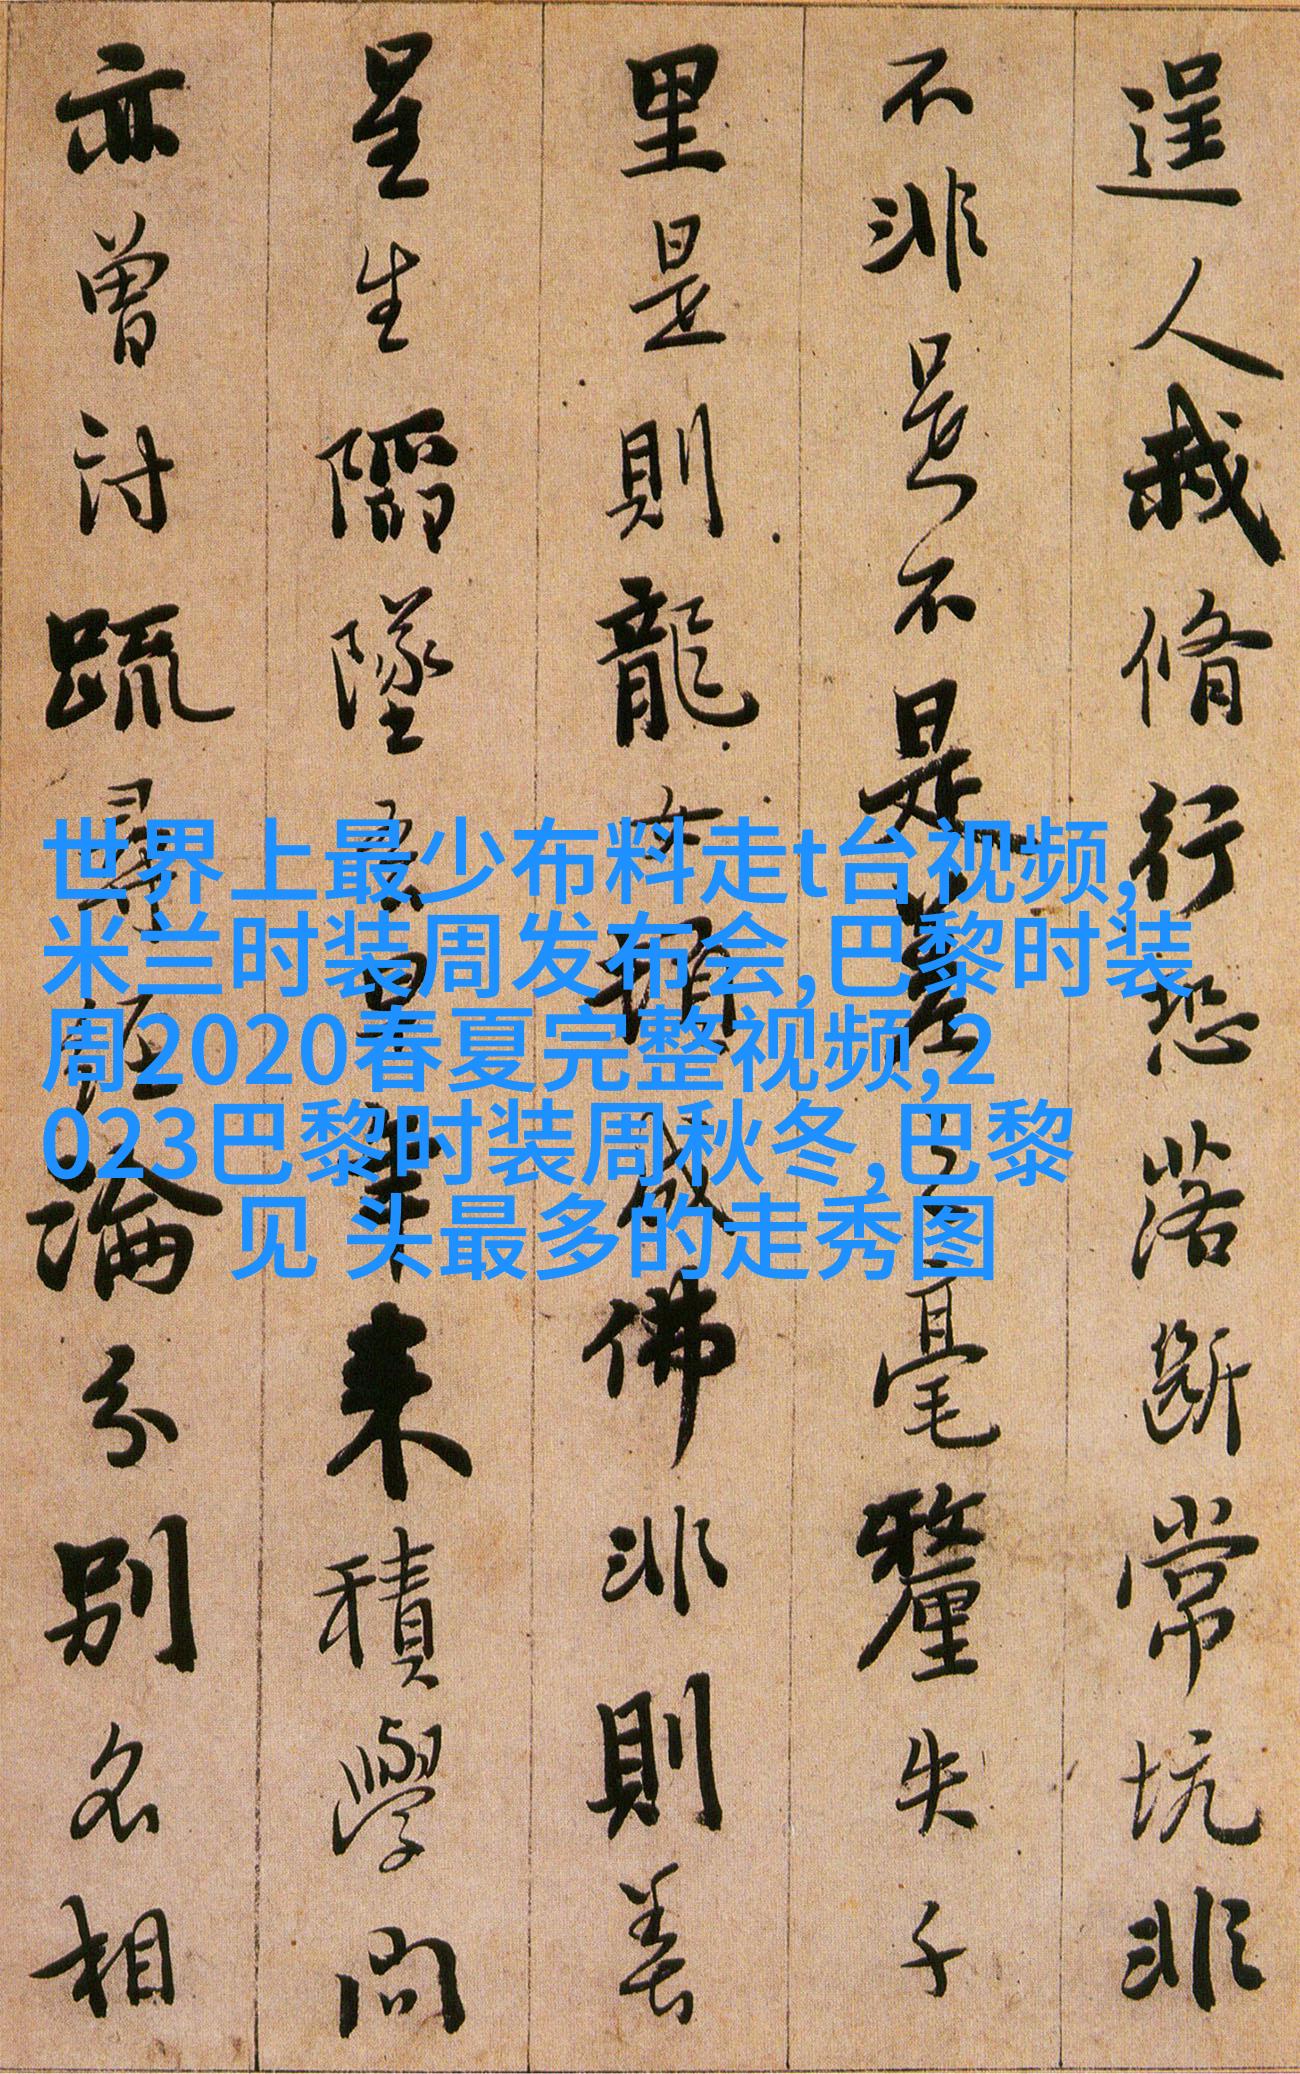 逞人我脩行恐落斷常坑非
不非是不是差之毫釐失千
里是則龍女頓成佛非則善
星生陷墜吾早年來積學問
亦曾討䟽尋經論分別名相
世界上最少布料走t台视频,
米兰时装周发布会,巴黎时装
周2020春夏完整视频,2
023巴黎时装周秋冬,巴黎
见 头最多的走秀图